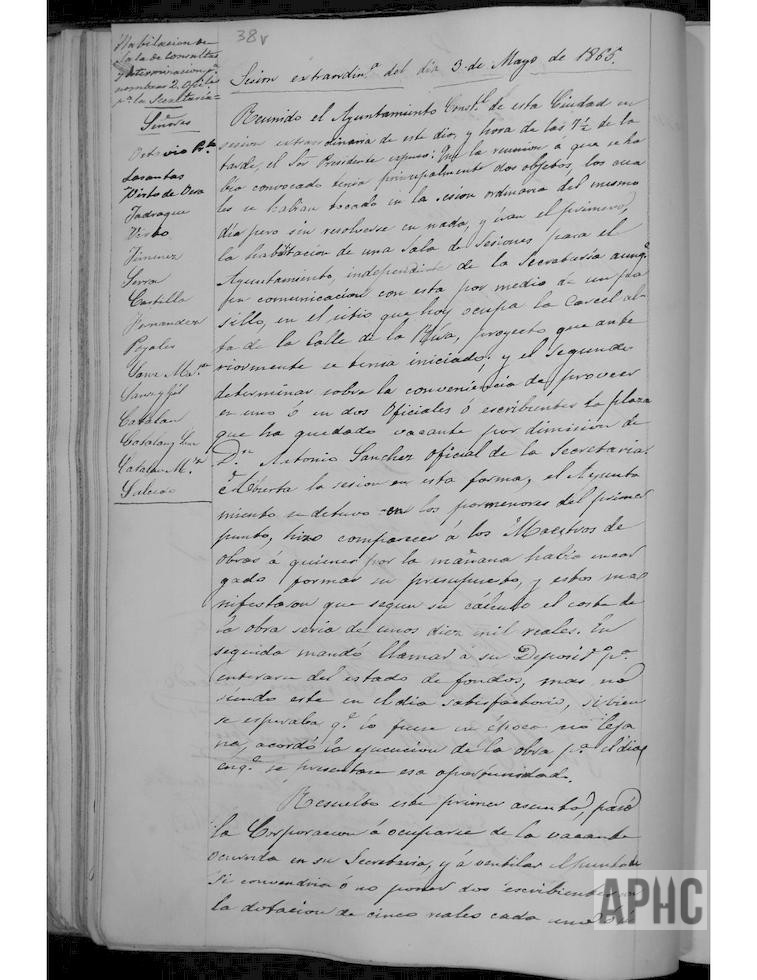 38v
Habilitacion de
sala de Consultas
y determinacion pª
nombrar 2. Ofiles
pª la Secretaria=
Señores
Octavio Pte
Lasantas
Virto de Vera
Jadraque
Virto
Jimenez
Serra
Castilla
Fernandez
Poyales
Sanz Ma.
Sanz y
Catalan
Catalan y
Catalan M.
Salcedo
Sesion extraordin.ª del dia 3 de Mayo de 1865.
Reunido el Ayuntamiento Const.l de esta Ciudad en
sesion extraordinaria de este dia, y hora de las 7½ de la
tarde, el Sor Presidente espuso: Que la reunion a que se ha
bia convocado tenia principalmente dos objetos, los cua
les se habian tocado en la sesion ordinaria del mismo
dia pero sin resolverse en nada, y eran el primero,
la habilitacion de una Sala de Sesiones para el
Ayuntamiento, independiente de la Secretaría aunq.e
con comunicacion con esta por medio de un pa
sillo, en el sitio que hoy ocupa la Carcel al-
ta de la Calle de la Rúa, proyecto que ante
riormente se tenia iniciado; y el segundo
determinar sobre la conveniencia de proveer
en uno ó en dos Oficiales ó escribientes la plaza
que ha quedado vacante por dimision de
D.n Antonio Sanchez Oficial de la Secretaria.
Abierta la sesion en esta forma, el Ayunta
miento se detuvo en los pormenores del primer
punto, hizo comparecer á los Maestros de
obras á quienes por la mañana habia encar
gado formar su presupuesto, y estos ma
nifestaron que segun su cálculo el coste de
la obra seria de unos diez mil reales. En
seguida mandó llamar á su Deposit.º p.ª
enterarse del estado de fondos, mas no
siendo este en el dia satisfactorio, si bien
se esperaba q.e lo fuese en época no leja
na, acordó la ejecucion de la obra p.ª el dia
enq.e se presentase esa oportunidad.
Resuelto este primer asunto, pasó
la Corporacion á ocuparse de la vacante
ocurrida en su Secretaria, y á ventilar el punto de
si convendria ó no poner dos escribientes con
la dotacion de cinco reales cada uno
APHC